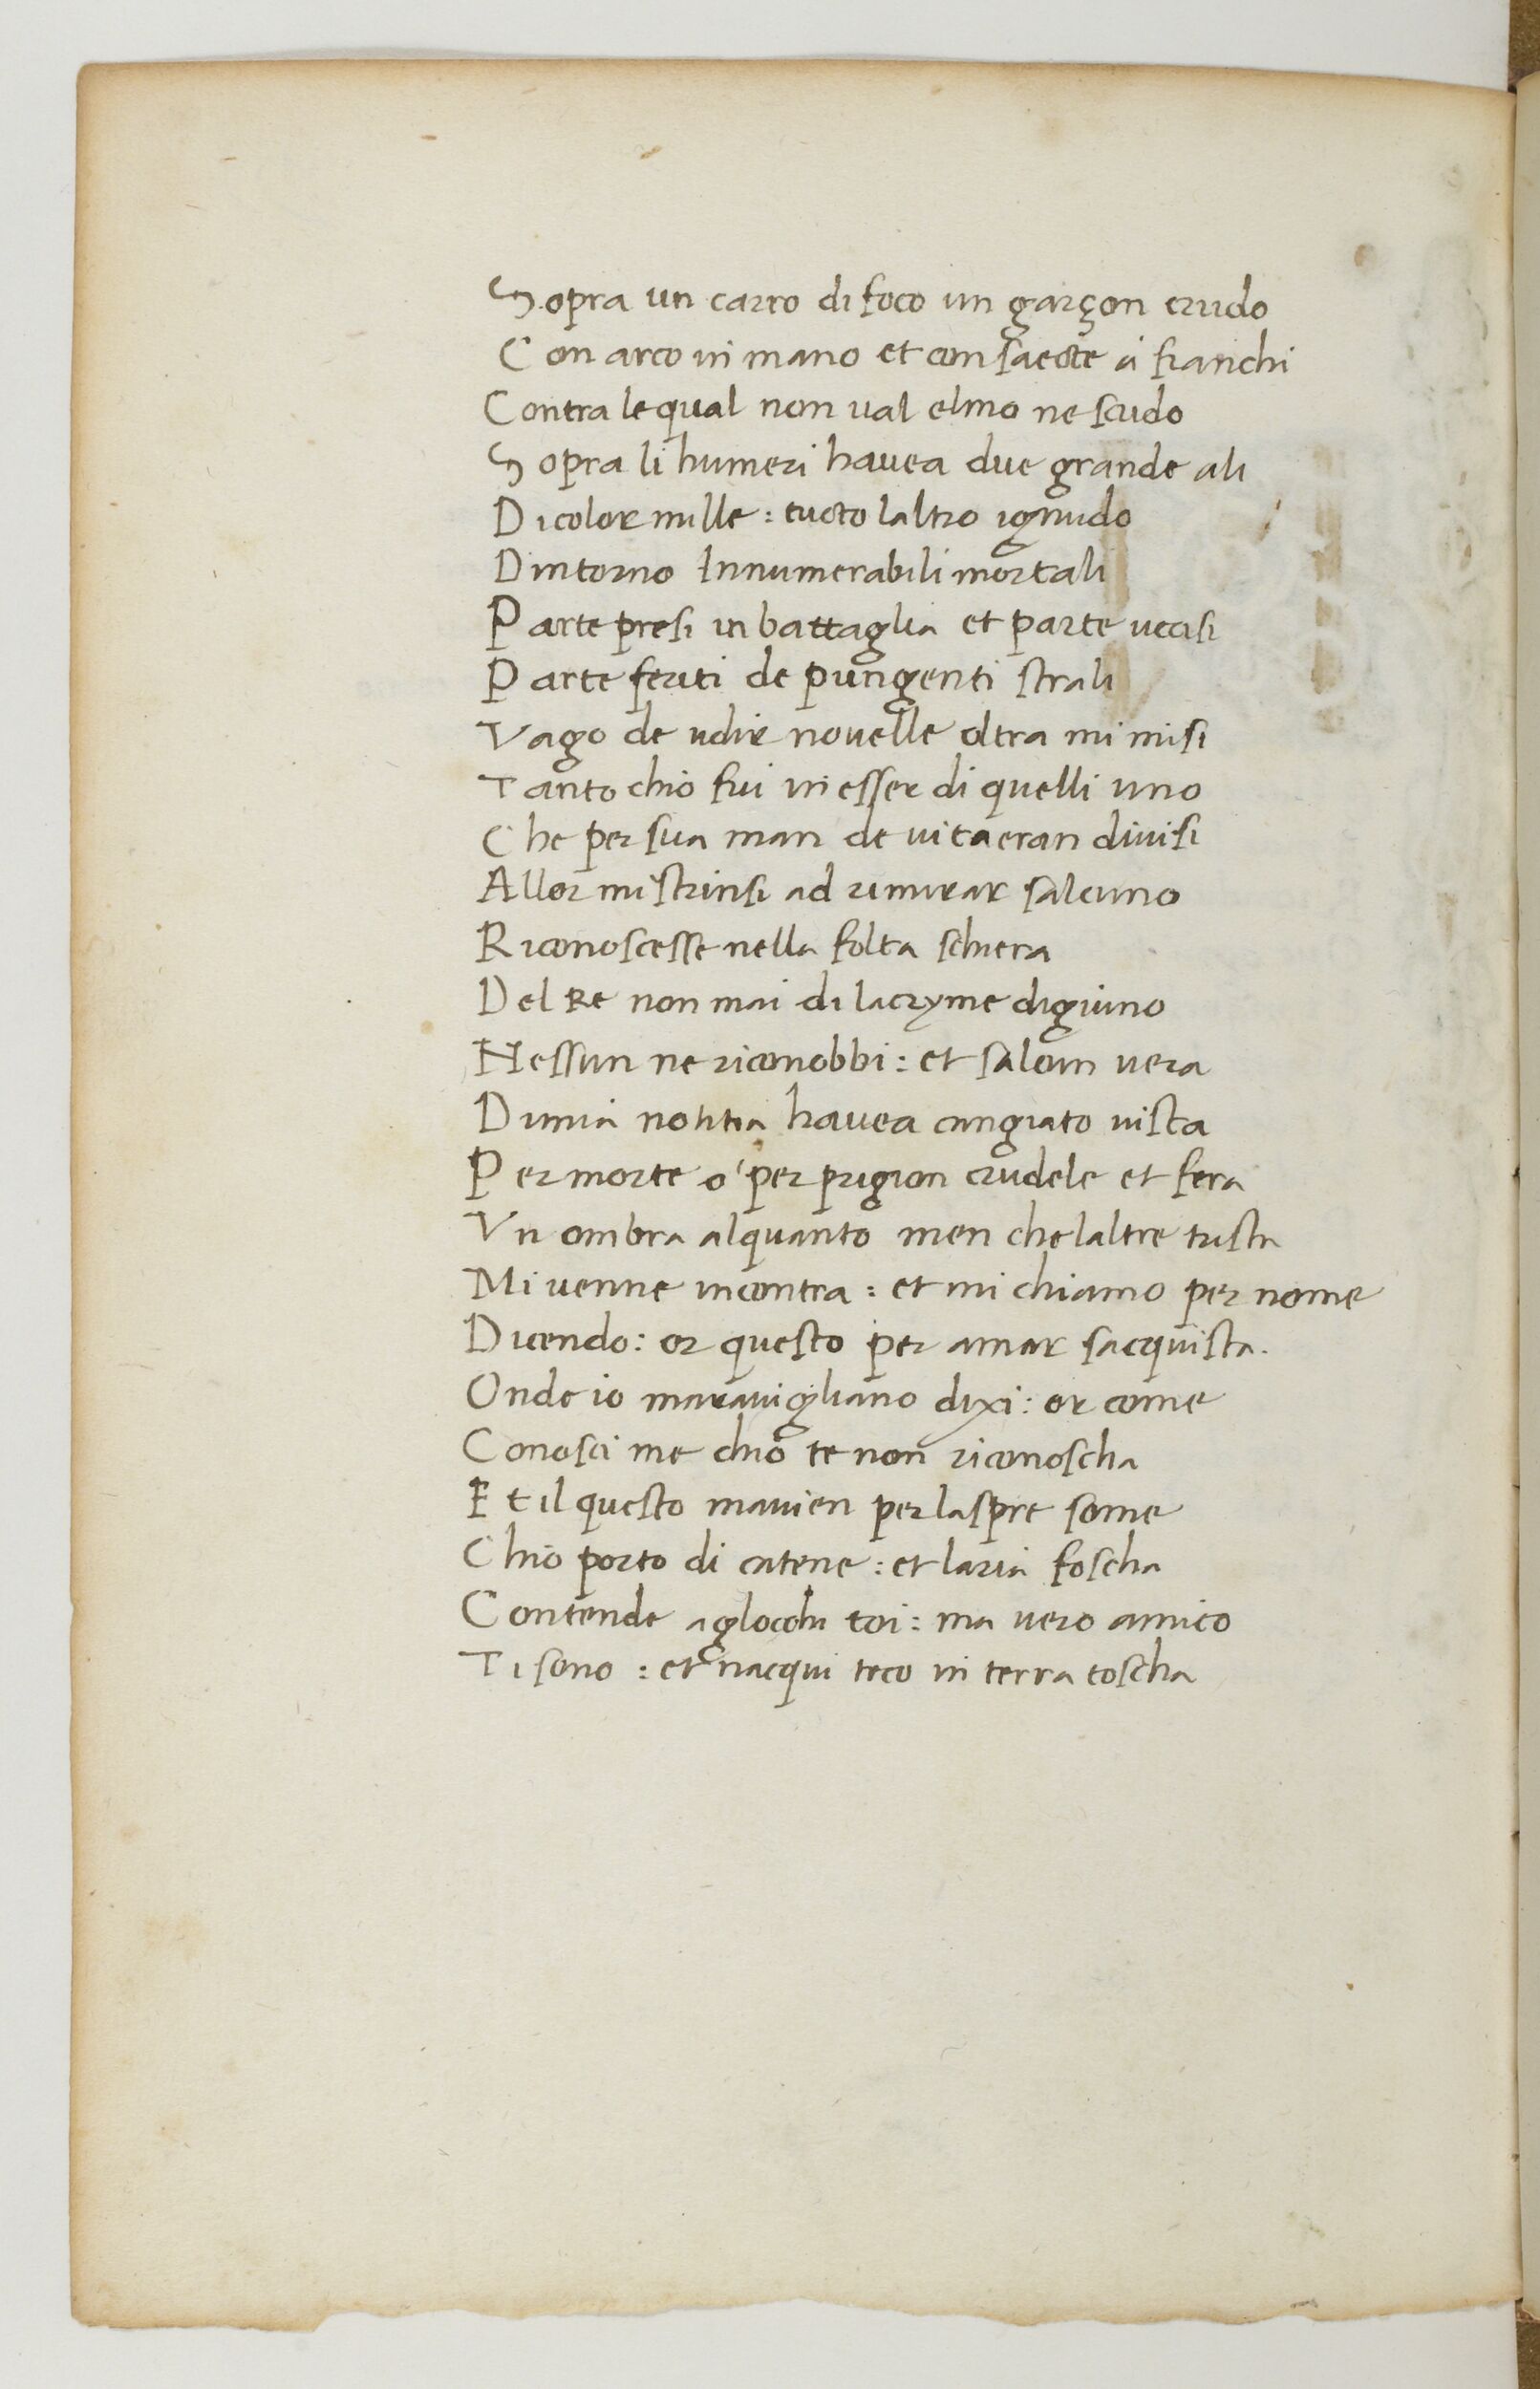 Sopra un carro di foco un garçon crudo
Con arco in mano et con saecte a fianchi
Contra le qual non val elmo ne scudo
Sopra li humeri havea due grande ali
Di color mille: tucto laltro ignudo
Dintorno Innumerabili mortali
Parte presi in battaglia et parte uccisi
Parte feriti de pungenti strali
Vago de udir novelle oltra mi misi
Tanto chio fui in esser di quelli uno
Che per sua man de vita eran divisi
Allor mi strinsi ad rimirar salcuno
Riconoscesse nella folta schiera
Del Re non mai di lacryme digiuno
Nessun ne riconobbi: et salcun vera
Di mia notitia havea cangiato vista
Per morte o per prigion crudele et fera
Vn ombra alquanto men che laltre trista
Mi venne incontra: et mi chiamo per nome
Dicendo: or questo per amar sacquista.
Onde io maravigliano dixi: or come
Conosci me chio te non riconoscha
Et il questo mavien per laspre some
Chio porto di catene: et laria foscha
Contende a glocchi toi: ma vero amico
Ti sono: et nacqui teco in terra toscha